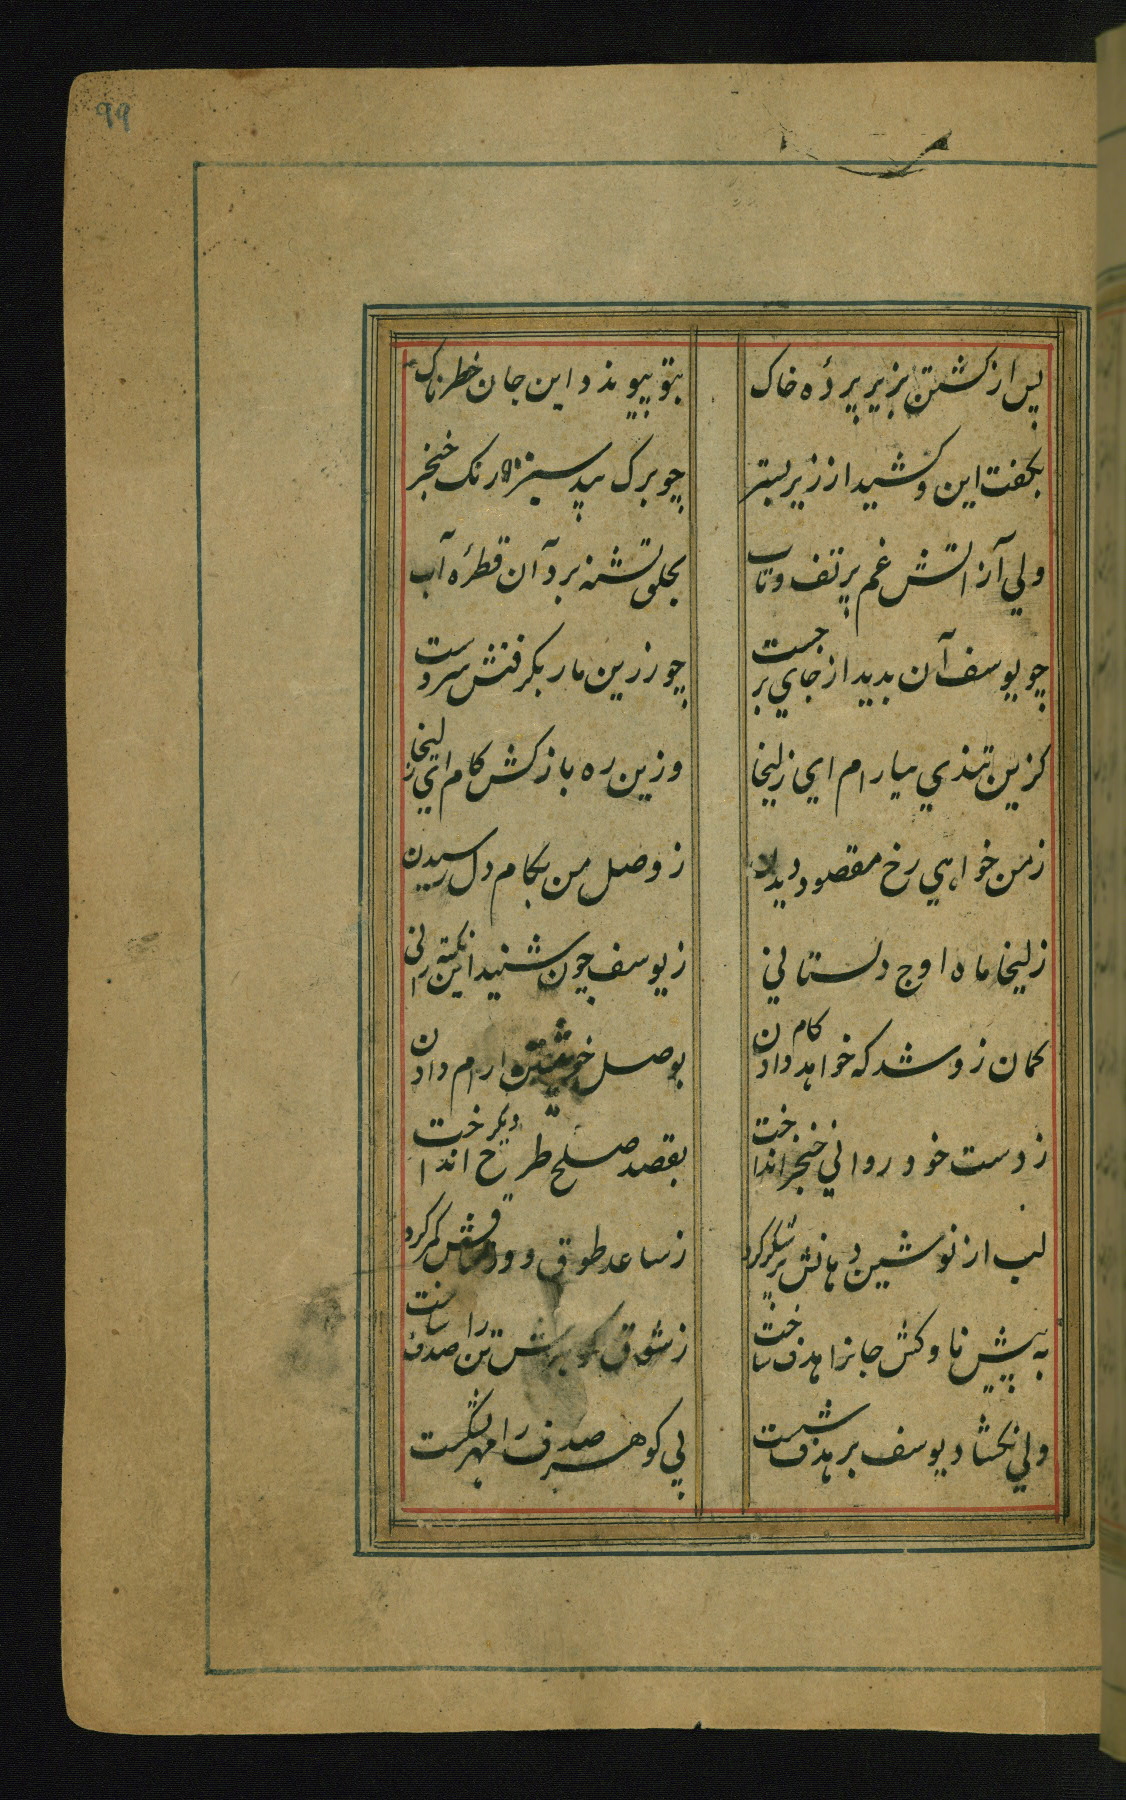 99
پس از کشتن بزیر پردهٔ خاک بتو پیوندد این جان خطرناک
بکفت این و کشید از زیر بستر چو برک بید سبز رنک خنجر
ولی آن از اتش غم پر تف و تاب بحلق تشنه برد آن قطرهٔ آب
چو یوسف آن بدید از جای بر جست چو زرین مار بکرفتش سر دست
کزین تندی بیارام ای زلیخا وزین ره باز کش کام ای زلیخا
زمن خواهی رخ مقصود دیدن ز وصل من بکام دل رسیدن
زلیخا ماه اوج دلستانی ز یوسف چون شنید این نکته رانی
کمان زو شد که خواهد کام دادن بوصل خویشتن ارام دادن
زدست خود روانی خنجر انداخت بقصد صلح طرح دیکر انداخت
لب از نوشین دهانش پر شکر کرد ز ساعد طوق و وز ساقش کمر کرد
به پیش ناوکش جانرا هدف ساخت ز شوق کوهرش تن را صدف ساخت
ولی نکشاد یوسف بر هدف شست پی کوهر صدف را مهر نشکست